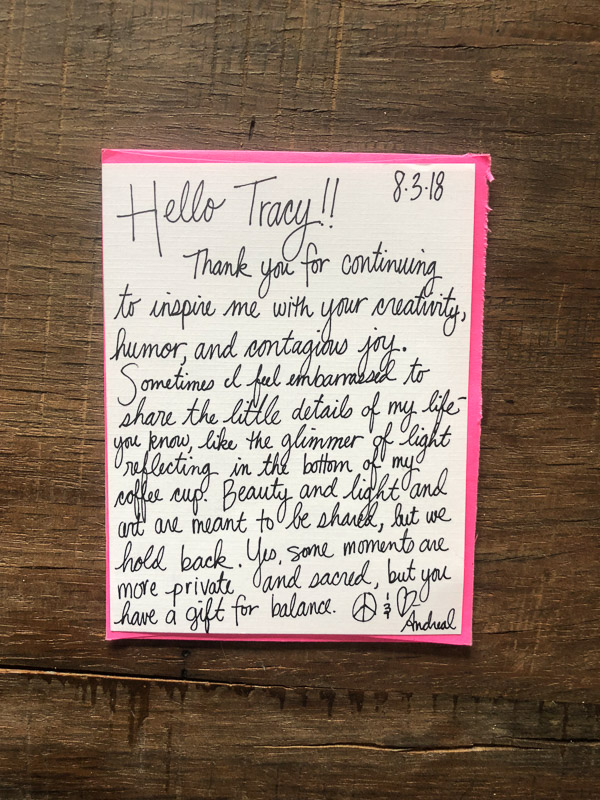 8.3.18
Hello Tracy!!
Thank you for continuing
to inspire me with your creativity,
humor, and contagious joy.
Sometimes I feel embarrassed to
share the little details of my life-
you know, like the glimmer of light
reflecting in the bottom of my
coffee cup. Beauty and light and
art are meant to be shared, but we
hold back. Yes, some moments are
more private and sacred, but you
have a gift for balance. ☮ & ♡
Andreal